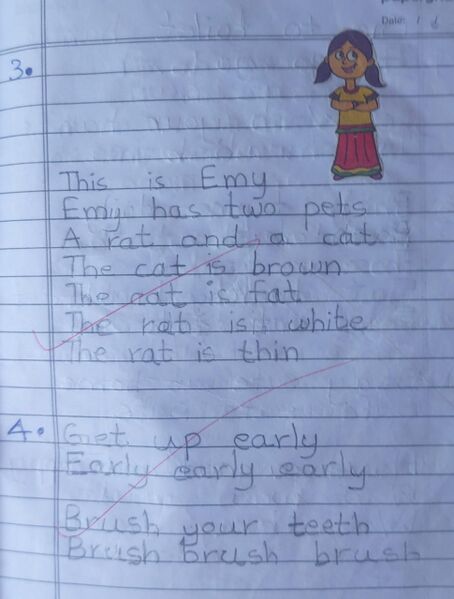 Date: / /
3.
This is Emy
Emy has two pets
A rat and a cat
The cat is brown
The cat is fat
The rat is white
The rat is thin
4. Get up early
Early early early
Brush your teeth
Brush brush brush